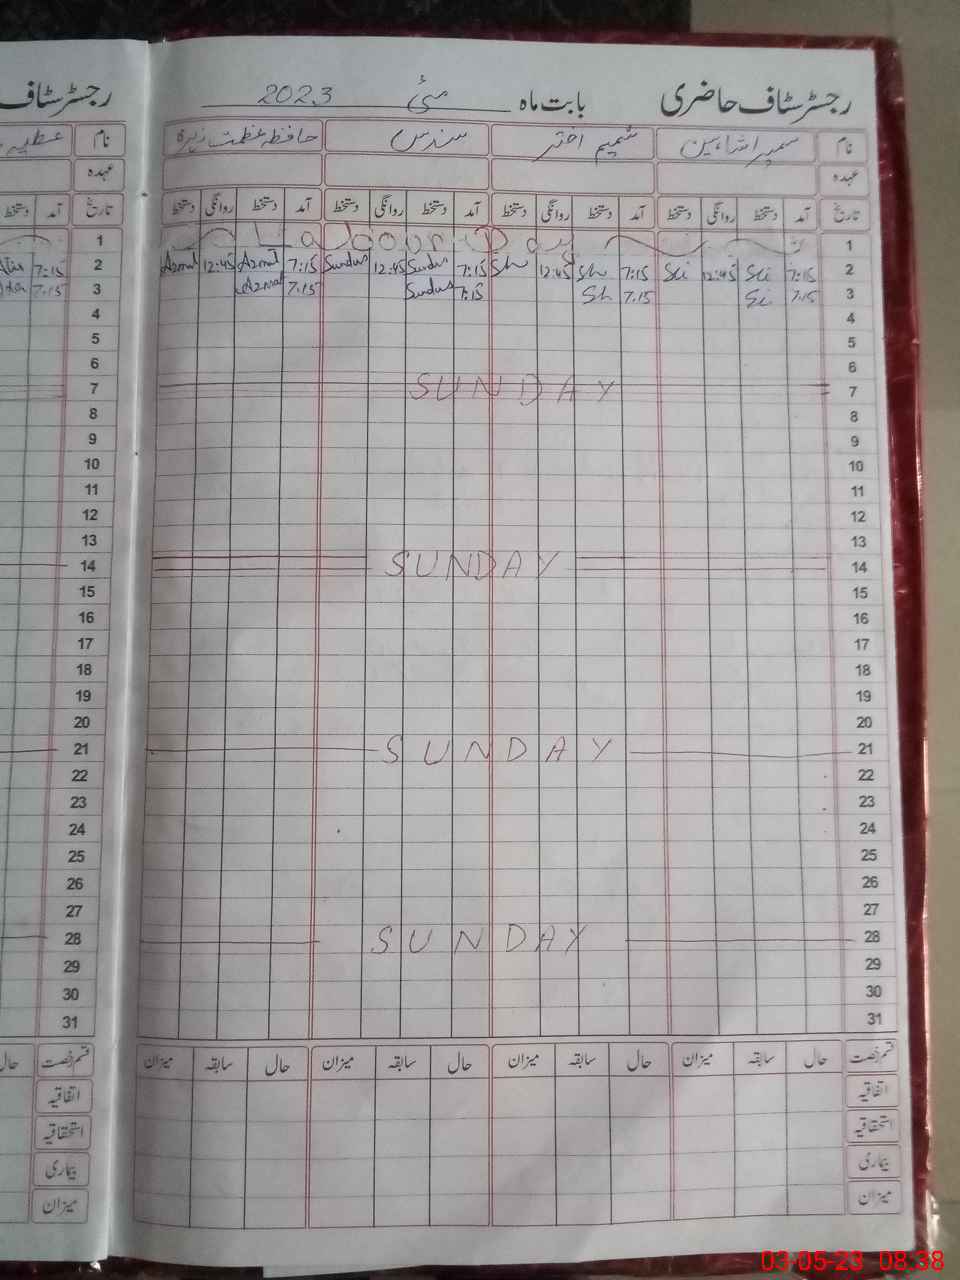 رجسٹر سٹاف حاضری بابت ماہ مئی 2023
نام سمیرا شاہین شمیم اختر سندس حافظہ عظمت زہرہ
عہدہ
تاریخ آمد دستخط روانگی دستخط آمد دستخط روانگی دستخط آمد دستخط روانگی دستخط آمد دستخط روانگی دستخط
1 Labour Day
2 7:15 12:45 7:15 Sh 12:45 Sh 7:15 Sundus 12:45 Sundus 7:15 Azmat 12:45 Azmat
3 7:15 7:15 Sh 7:15 Sundus 7:15 Azmat
4
5
6
7 SUNDAY
8
9
10
11
12
13
14 SUNDAY
15
16
17
18
19
20
21 SUNDAY
22
23
24
25
26
27
28 SUNDAY
29
30
31
قسم رخصت حال سابقہ میزان حال سابقہ میزان حال سابقہ میزان حال سابقہ میزان
اتفاقیہ
استحقاقیہ
بیماری
میزان
رجسٹر سٹاف
نام عطیہ
عہدہ
تاریخ آمد دستخط
1
2 7:15
3 7:15
4
5
6
7
8
9
10
11
12
13
14
15
16
17
18
19
20
21
22
23
24
25
26
27
28
29
30
31
قسم رخصت حال
اتفاقیہ
استحقاقیہ
بیماری
میزان
03-05-23 08:38